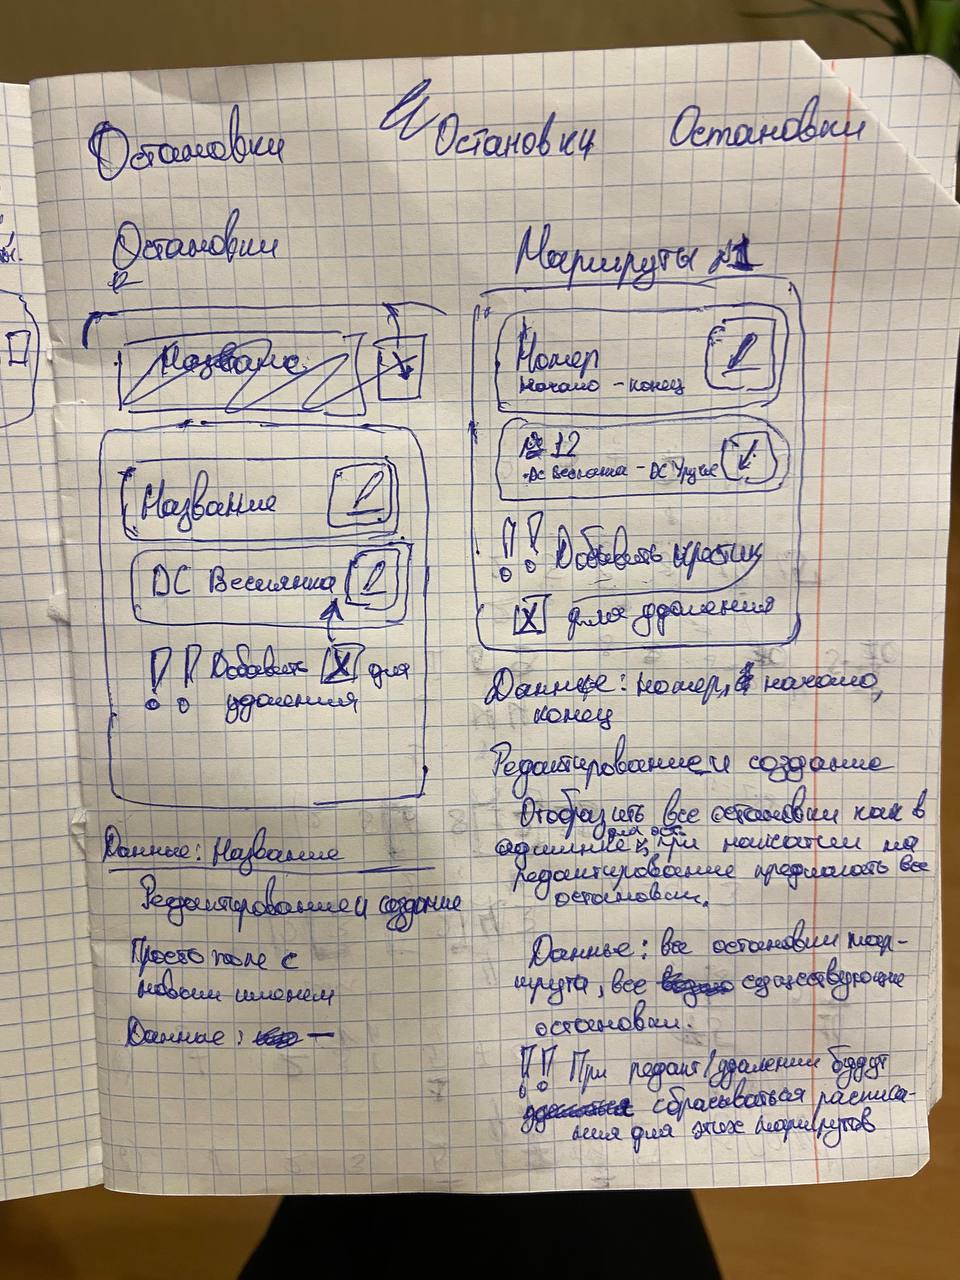 Остановки
Остановки
Остановки
Остановки
Название
Название
ДС Веснянка
!! Добавить X для
удаления
Данные: Название
Редактирование и создание
Просто поле с
новым именем
Данные: —
Маршруты
Номер
Начало - конец
№ 12
ДС Веснянка - ДС Уручье
!! Добавить крестик
X для удаления
Данные: номер, начало,
конец
Редактирование и создание
Отобразить все остановки как в
админке, при нажатии на
редактирование предлагать все
остановки.
Данные: все остановки мар-
шрута, все существующие
остановки.
!! При редакт/удалении будут
сбрасываться расписа-
ния для этих маршрутов